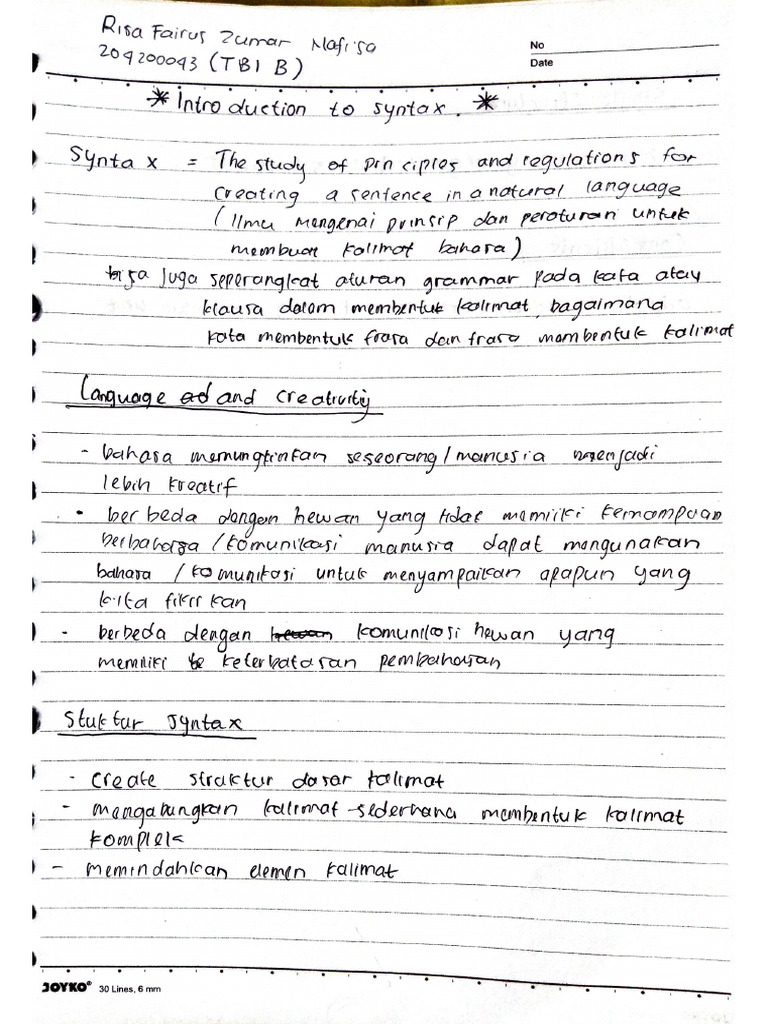 Risa Fairus Zumar Nafisa
204200093 (TBI B)
No
Date
* Introduction to syntax. *
Syntax = The study of principles and regulations for
creating a sentence in a natural language
(Ilmu mengenai prinsip dan peraturan untuk
membuat kalimat bahasa)
bisa juga seperangkat aturan grammar pada kata atau
klausa dalam membentuk kalimat, bagaimana
kata membentuk frasa dan frasa membentuk kalimat
Language and creativity
- bahasa memungkinkan seseorang/manusia menjadi
lebih kreatif
- berbeda dengan hewan yang tidak memiliki kemampuan
berbahasa/komunikasi manusia dapat mengunakan
bahasa/komunikasi untuk menyampaikan apapun yang
kita fikirkan
- berbeda dengan komunikasi hewan yang
memiliki keterbatasan pembahasan
Stuktur syntax
- create struktur dasar kalimat
- mengabungkan kalimat sederhana membentuk kalimat
komplek
- memindahkan elemen kalimat
JOYKO® 30 Lines, 6 mm